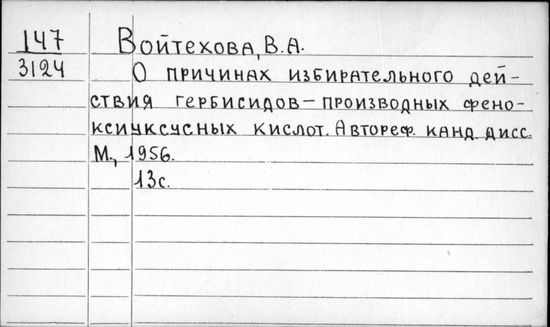 147 Войтехова, В.А.
3124 О причинах избирательного дей-
ствия гербисидов – производных фено-
ксиуксусных кислот. Автореф. канд. дисс.
М., 1956.
13с.